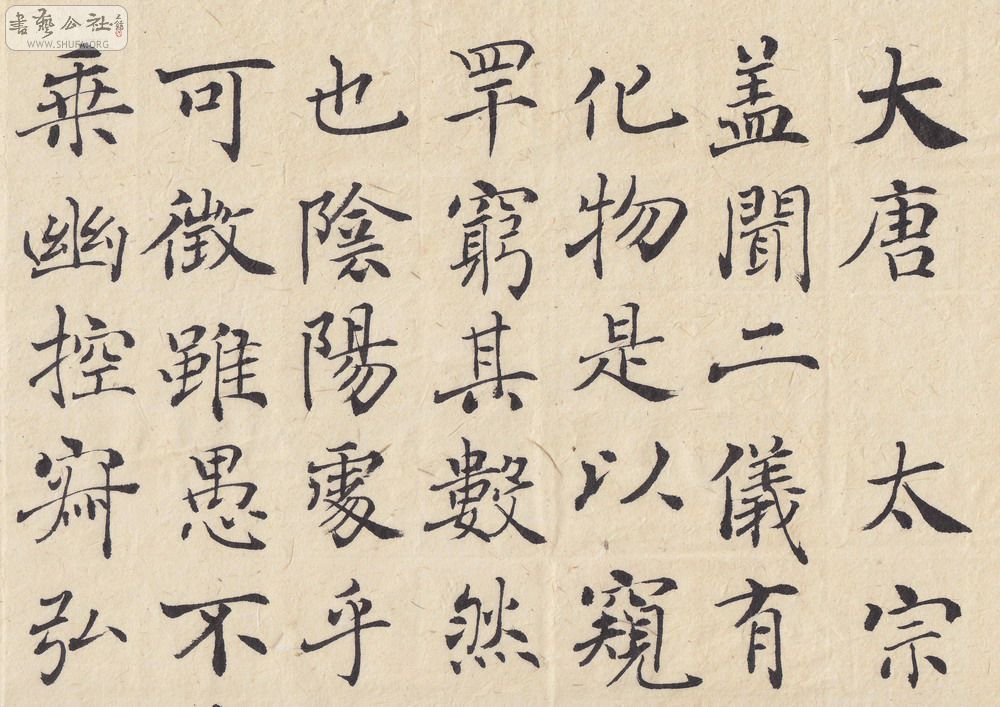 大唐太宗
蓋聞二儀有
化物是以窺
罕窮其數然
也陰陽處乎
可徵雖愚不
乗幽控寂弘
書藝公社
WWW.SHUFA.ORG